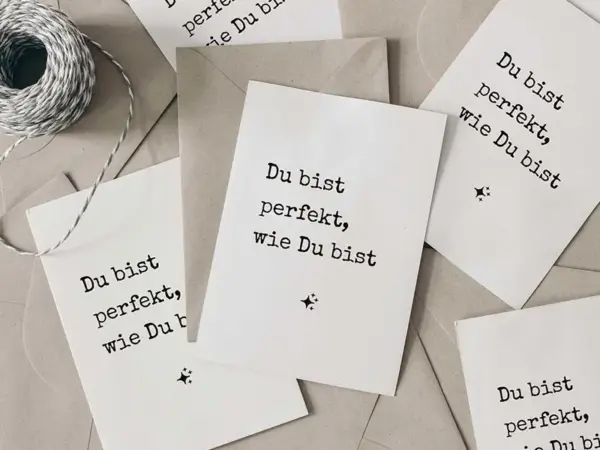 perfekt,
wie Du bist
Du bist
perfekt,
wie Du bist
Du bist
perfekt,
wie Du bist
Du bist
perfekt,
wie Du b
Du bist
perfekt,
wie Du bist